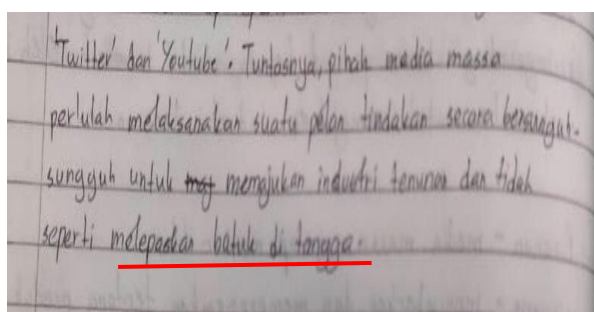 'Twitter' dan 'Youtube'. Tuntasnya, pihak media massa
perlulah melaksanakan suatu pelan tindakan secara bersungguh-
sungguh untuk memajukan industri tenunan dan tidak
seperti melepaskan batuk di tangga.